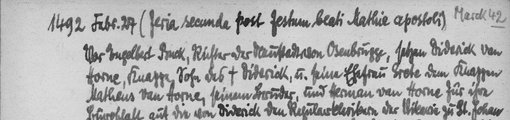 1492 Febr. 27 (feria secunda post festum beati Mathie apostoli) Marck 42
Vor Engelbert Dreck, Richter der Neustadt von Osenbrugge, setzen Diderick van
Horne, Knappe, Sohn des † Diderick, u. seine Ehefrau Grete dem Knappen
Matheus van Horne, seinem Bruder, und Herman van Horne für ihre
auf die von Diderick den Regularklerikern der Vikarie zu St. Johan